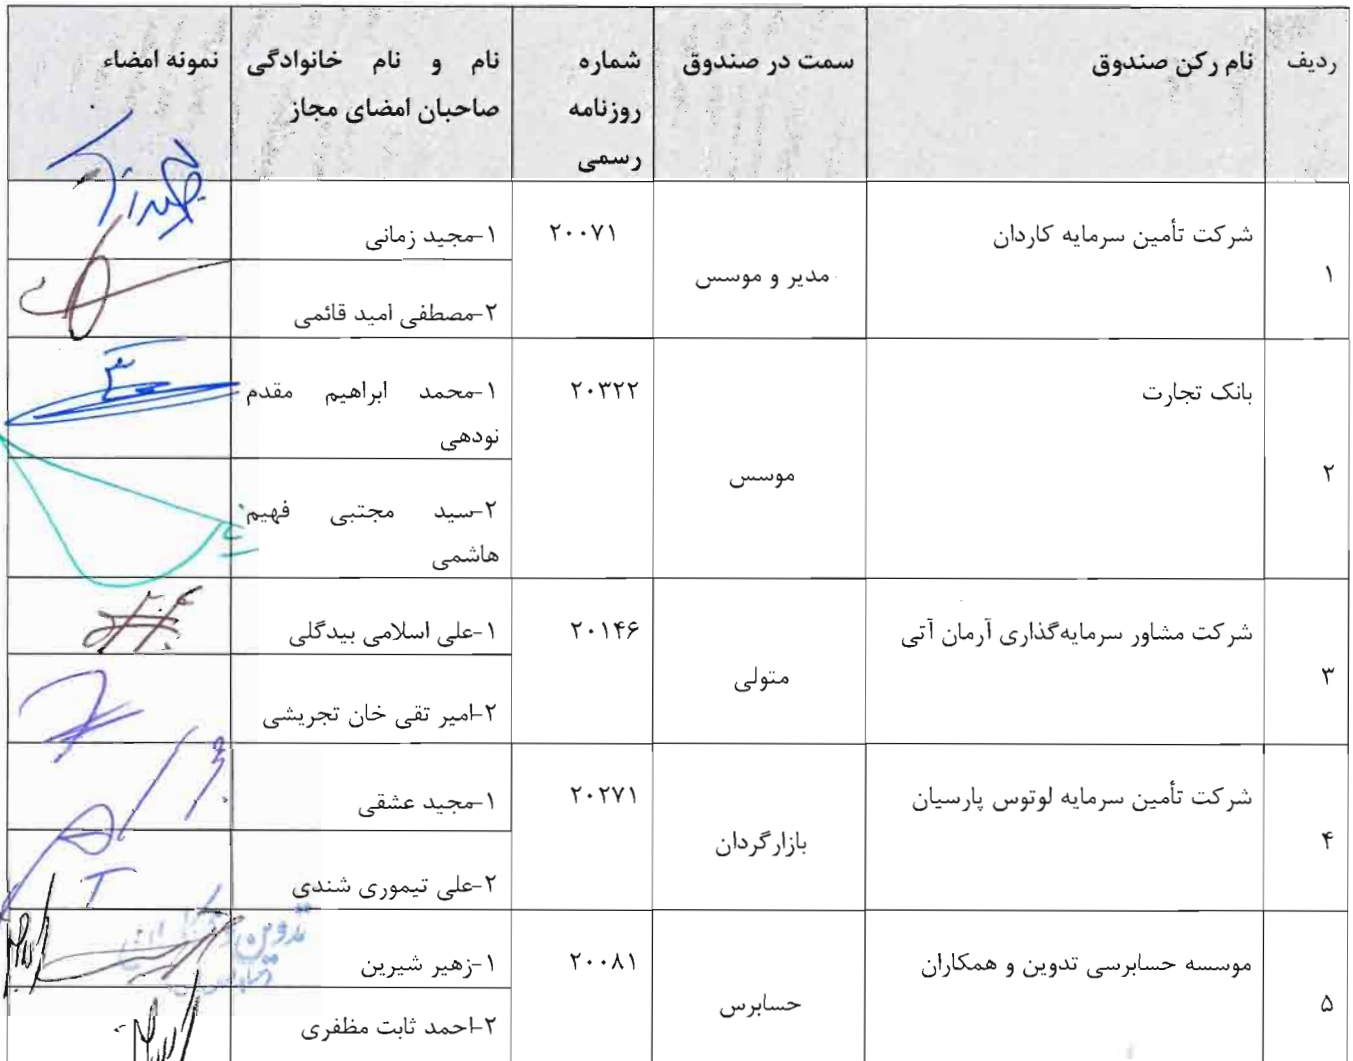 ردیف
نام رکن صندوق
سمت در صندوق
شماره
روزنامه
رسمی
نام و نام خانوادگی
صاحبان امضای مجاز
نمونه امضاء
۱
شرکت تأمین سرمایه کاردان
مدیر و موسس
۲۰۰۷۱
۱-مجید زمانی
۲-مصطفی امید قائمی
۲
بانک تجارت
موسس
۲۰۳۲۲
۱-محمد ابراهیم مقدم
نودهی
۲-سید مجتبی فهیم
هاشمی
۳
شرکت مشاور سرمایه‌گذاری آرمان آتی
متولی
۲۰۱۴۶
۱-علی اسلامی بیدگلی
۲-امیر تقی خان تجریشی
۴
شرکت تأمین سرمایه لوتوس پارسیان
بازارگردان
۲۰۲۷۱
۱-مجید عشقی
۲-علی تیموری شندی
۵
موسسه حسابرسی تدوین و همکاران
حسابرس
۲۰۰۸۱
۱-زهیر شیرین
۲-احمد ثابت مظفری
تدوین